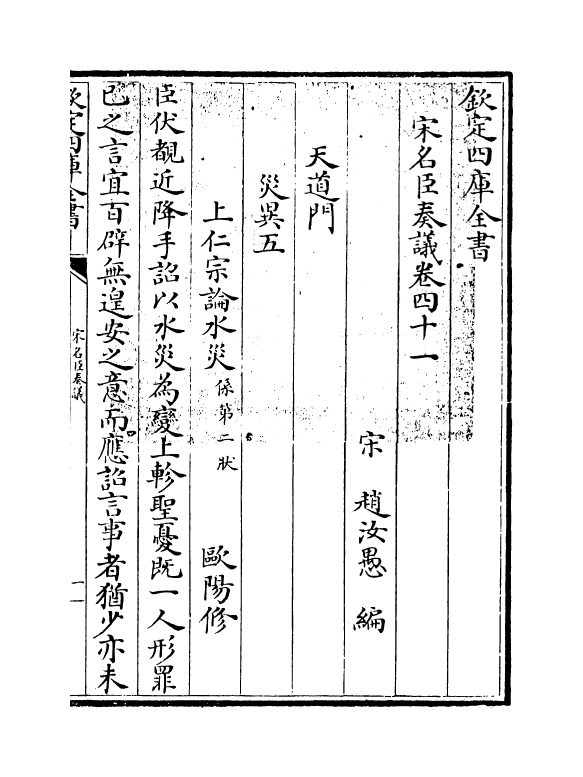 欽定四庫全書
宋名臣奏議卷四十一
宋 趙汝愚 編
天道門
災異五
上仁宗論水災 係第二狀 歐陽修
臣伏覩近降手詔以水災為變上軫聖憂既一人形罪
已之言宜百辟無遑安之意而應詔言事者猶少亦未
欽定四庫全書
宋名臣奏議
一